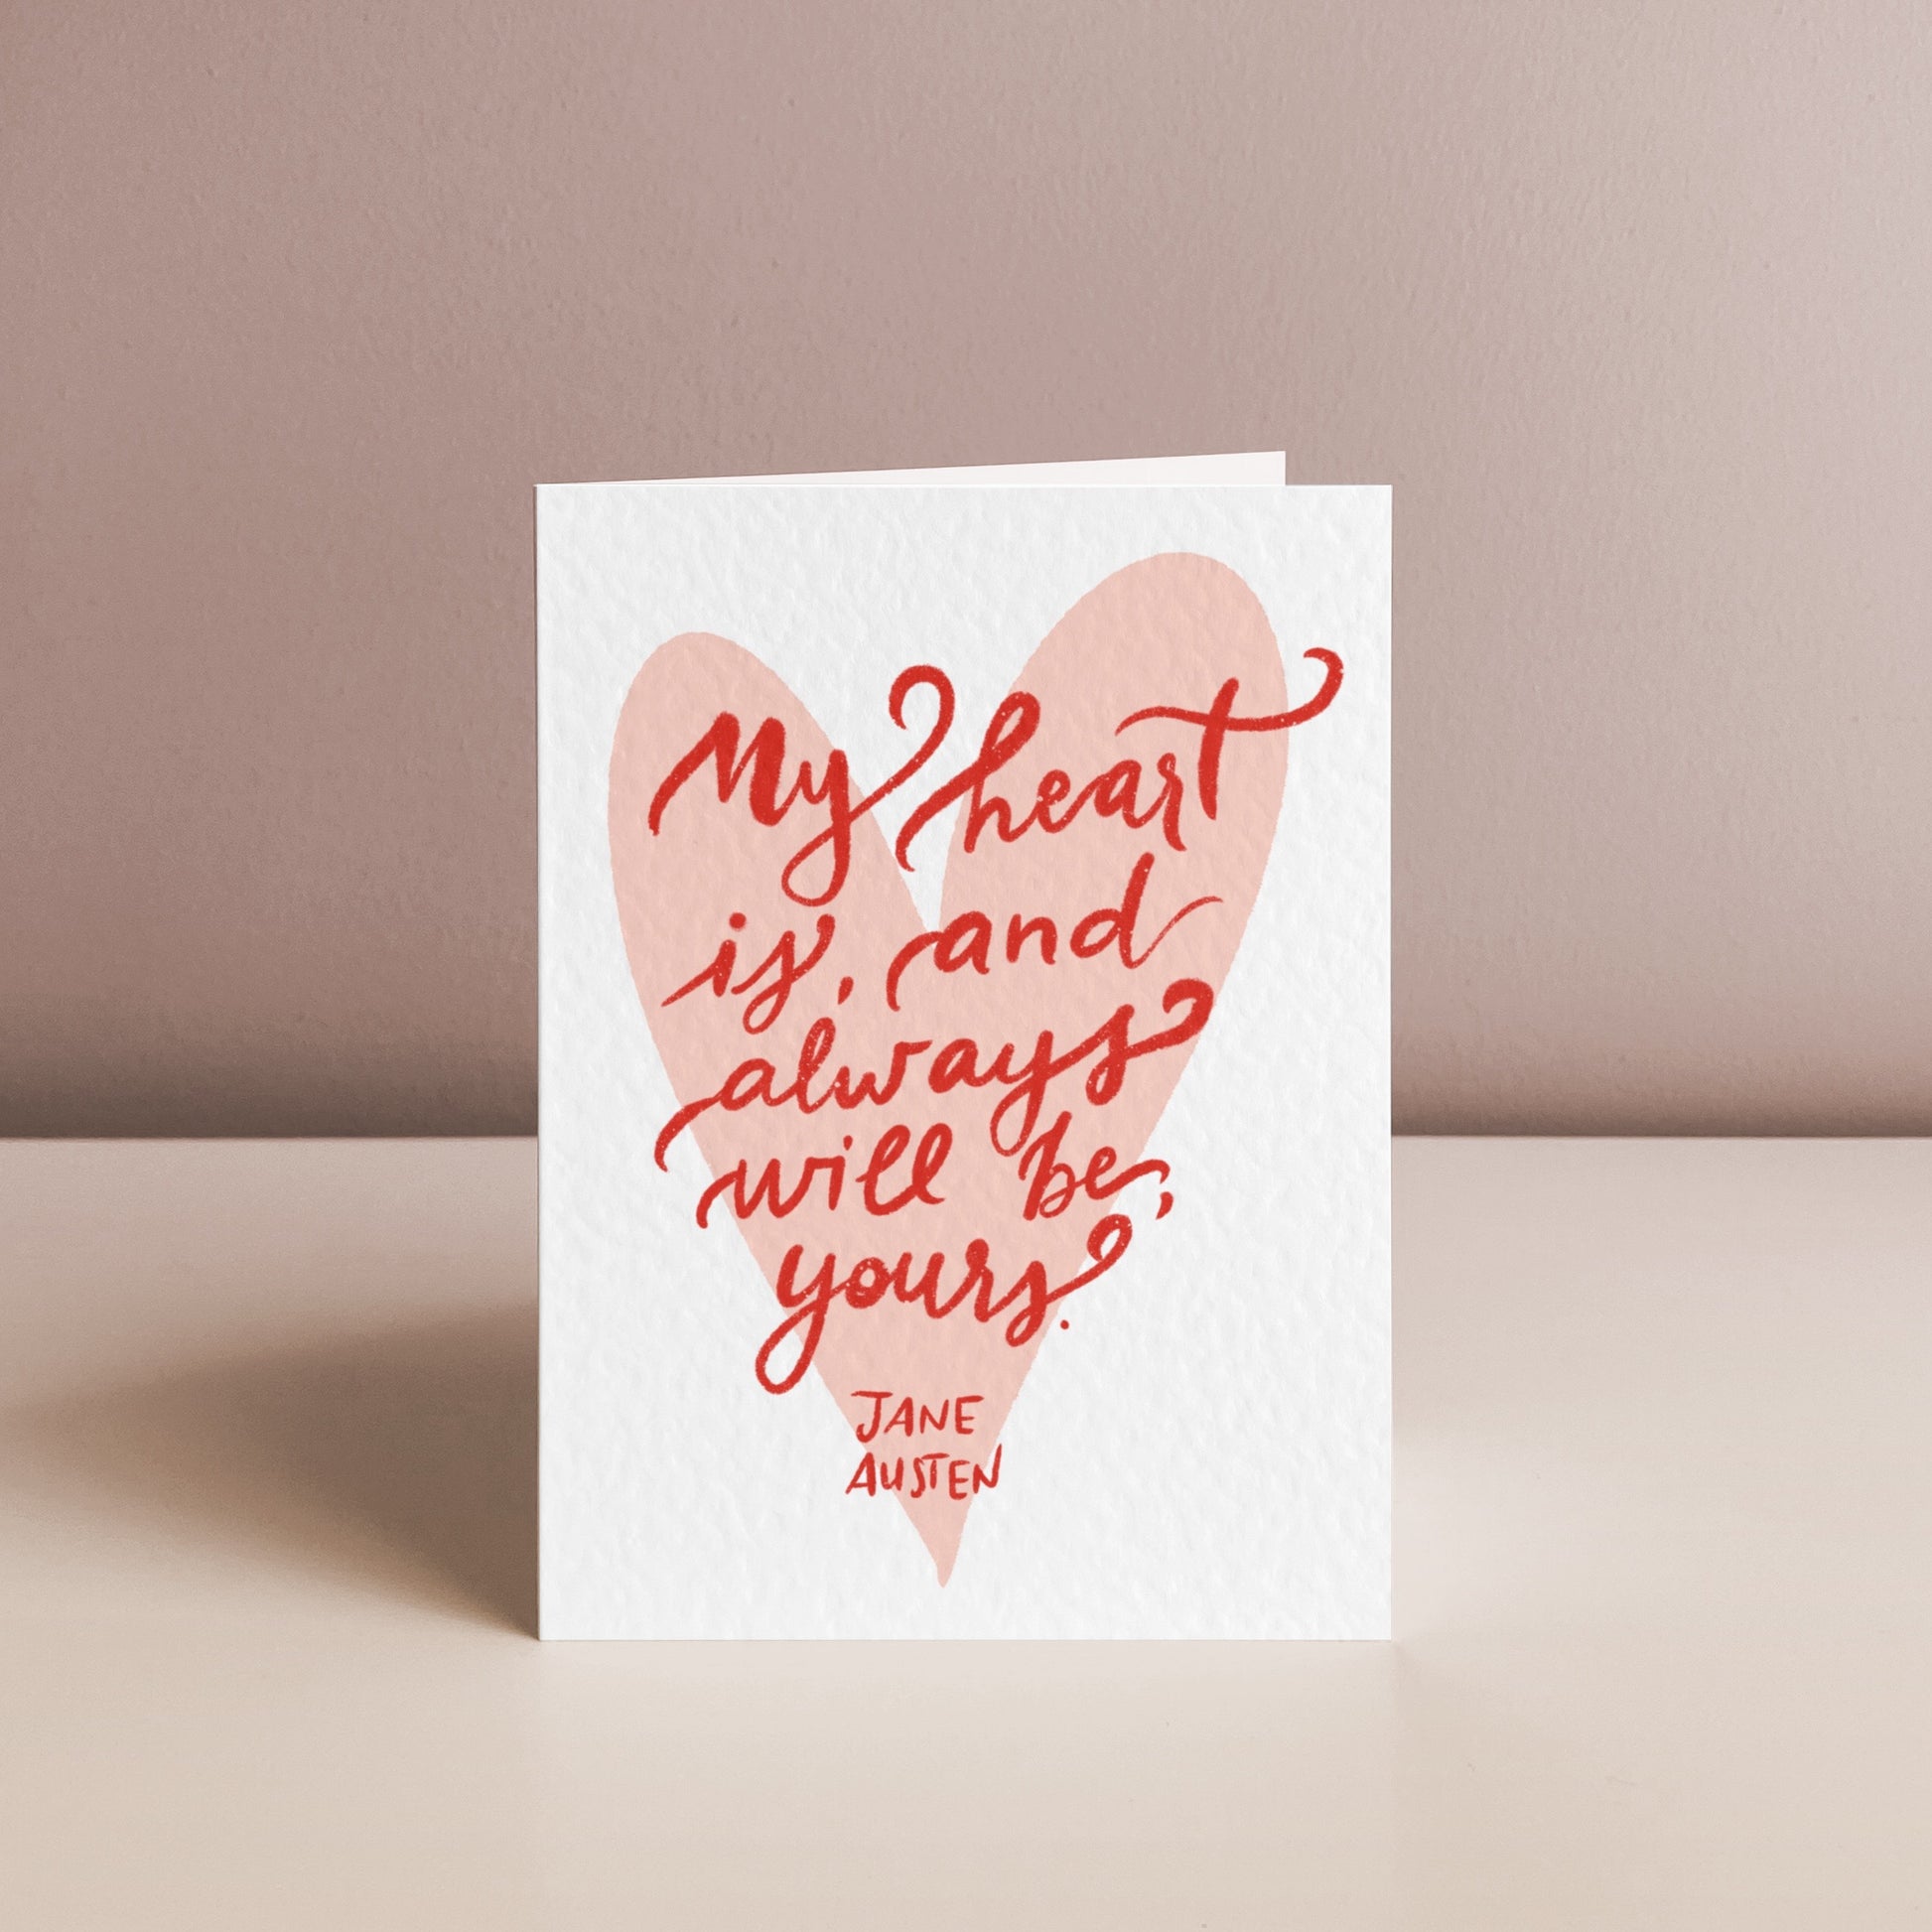 My heart
is, and
always
will be,
yours.
JANE
AUSTEN